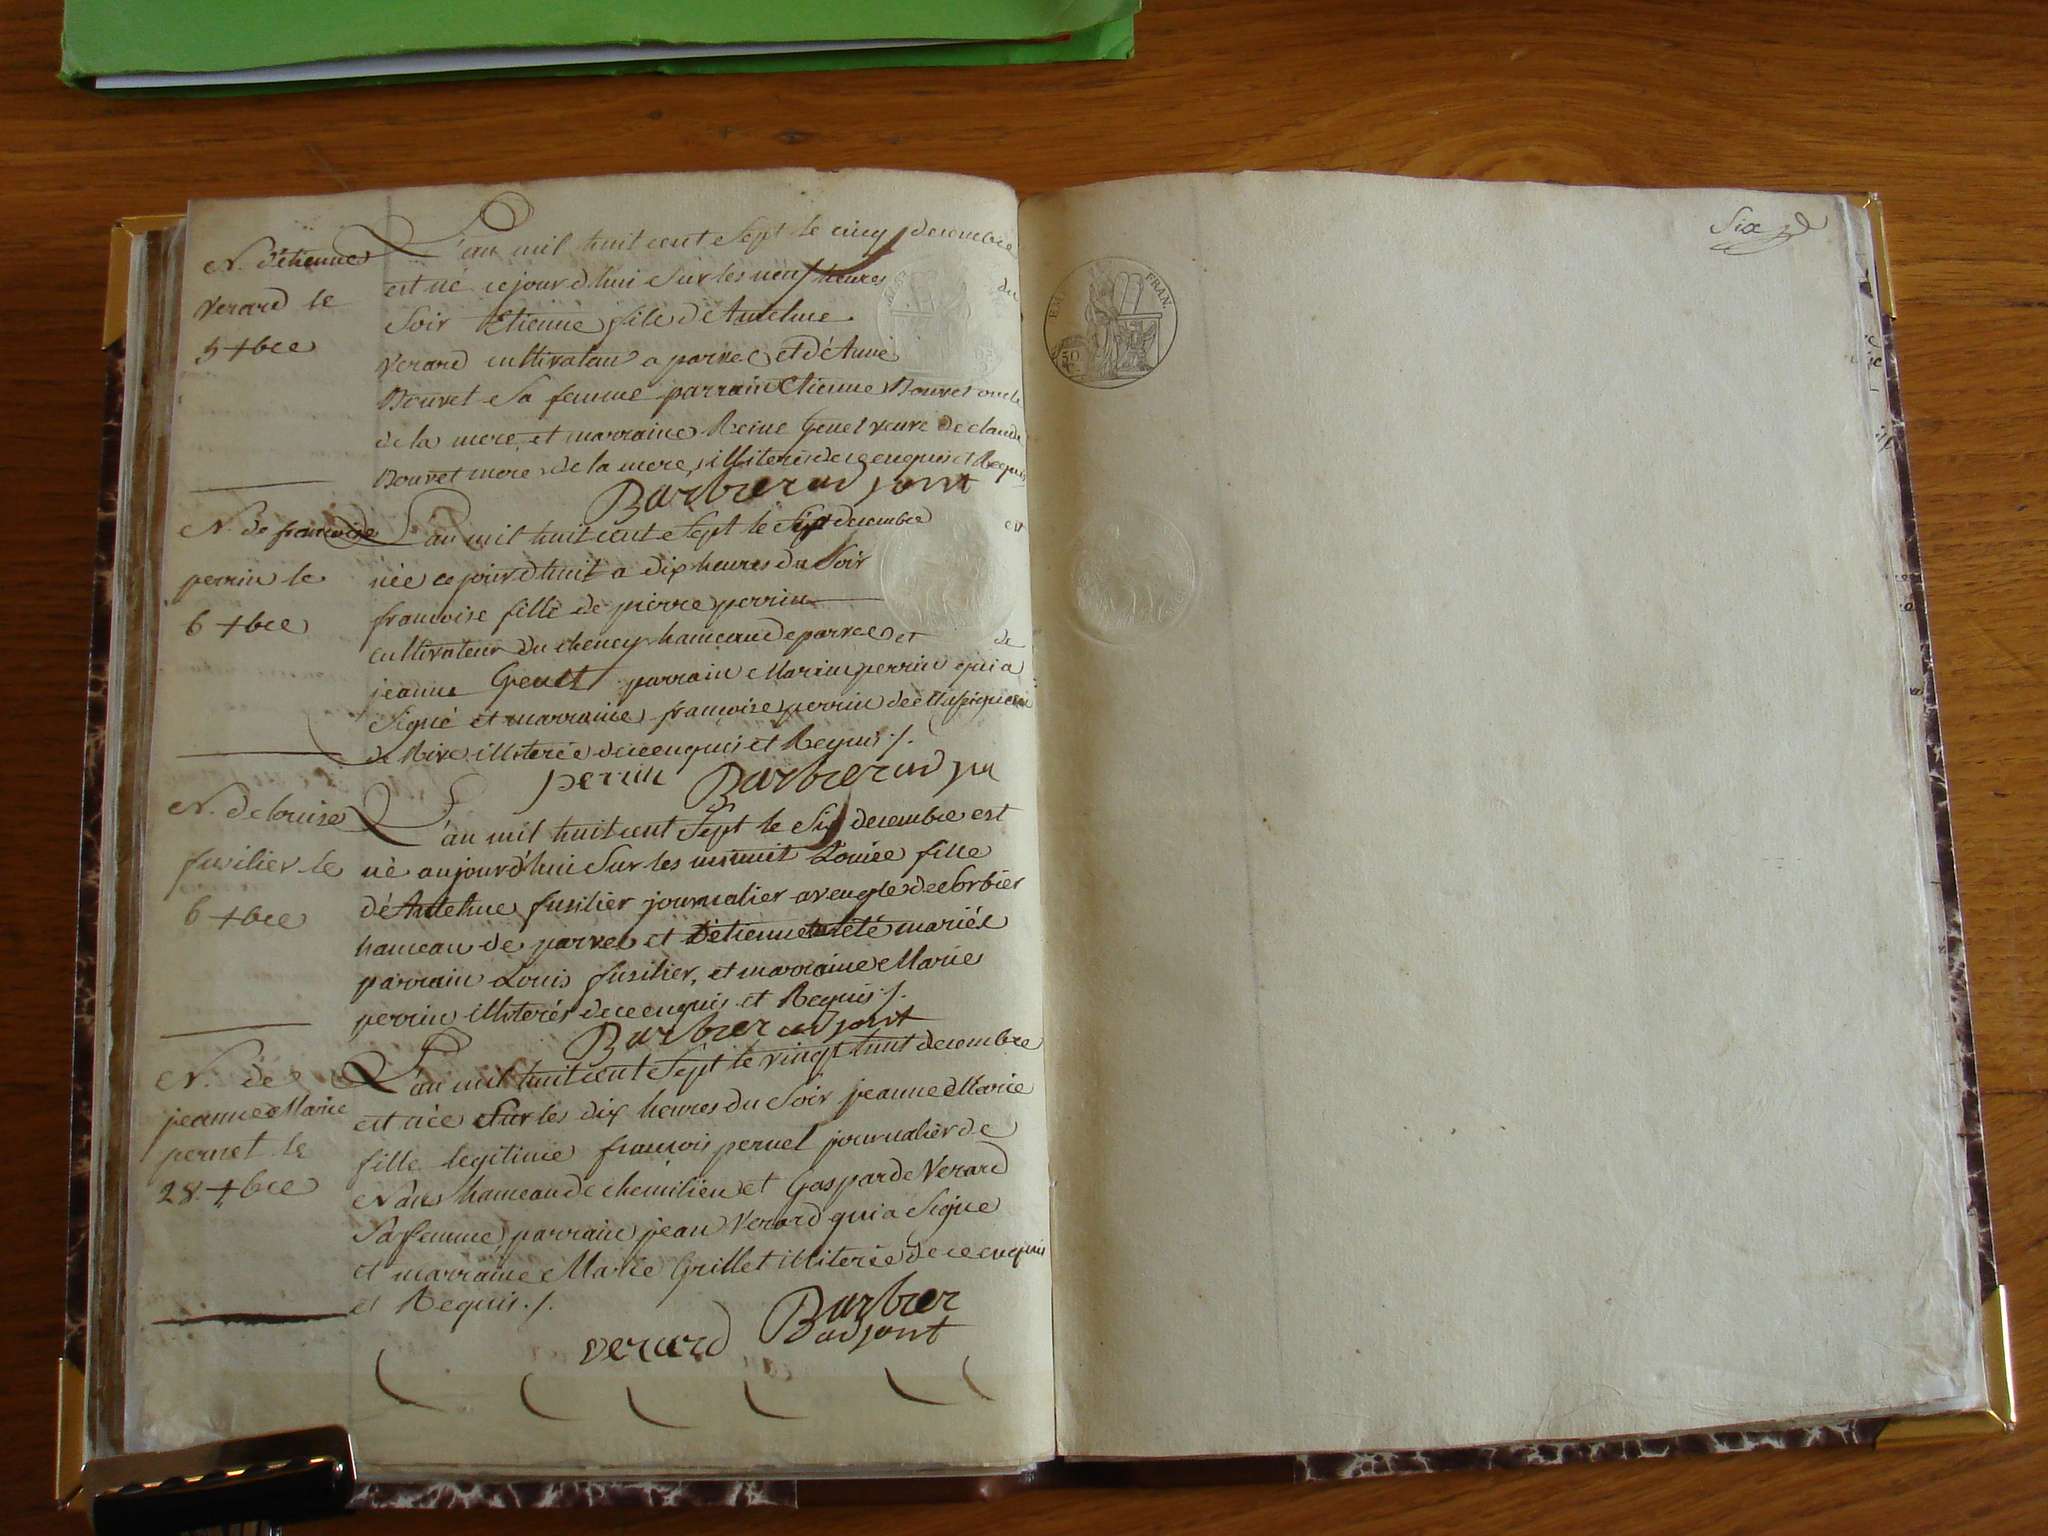 N. d'étienne
verard le
5 Xbre
L'an mil huit cent Sept le cinq decembre
est né ce jourd'hui Sur les neuf heures du
Soir Etienne fils d'Antelme
verard cultivateur a parves et d'Anne
Bouvet Sa femme parrain Etienne Bouvet oncle
de la mere, et marraine Reine Genet veuve de claude
Bouvet mere de la mere, illiterés de ce enquis et Requis
Barbier adjoint
N. de francoise
perrin le
6 Xbre
L'an mil huit cent Sept le Six decembre est
née ce jourd'huit a dix heures du Soir
francoise fille de pierre perrin
cultivateur du hameau de parves et de
jeanne Genet parrain Marin perrin qui a
Signé et marraine françoise perrin de
de Rive illiterée de ce enquis et Requis ./.
perrin Barbier adjoint
N. de louise
fusilier le
6 Xbre
L'an mil huit cent Sept le Six decembre est
né aujourd'hui Sur les minuit Louise fille
d'Antelme fusilier journalier aveugle de Sorbier
hameau de parves et d'étiennete mariés
parrain Louis fusilier, et marraine Marie
perrin illiterés de ce enquis et Requis ./.
Barbier adjoint
N. de
jeanne Marie
pernet le
28 Xbre
L'an mil huit cent Sept le vingt huit decembre
est née Sur les dix heures du Soir jeanne Marie
fille legitime francois pernet journalier de
Nans hameau de chemilieu et Gasparde Verard
Sa femme, parrain jean Verard qui a Signé
et marraine Marie Grillet illiterée de ce enquis
et Requis ./.
verard Barbier
adjoint
Six
EMP. FRAN.
50